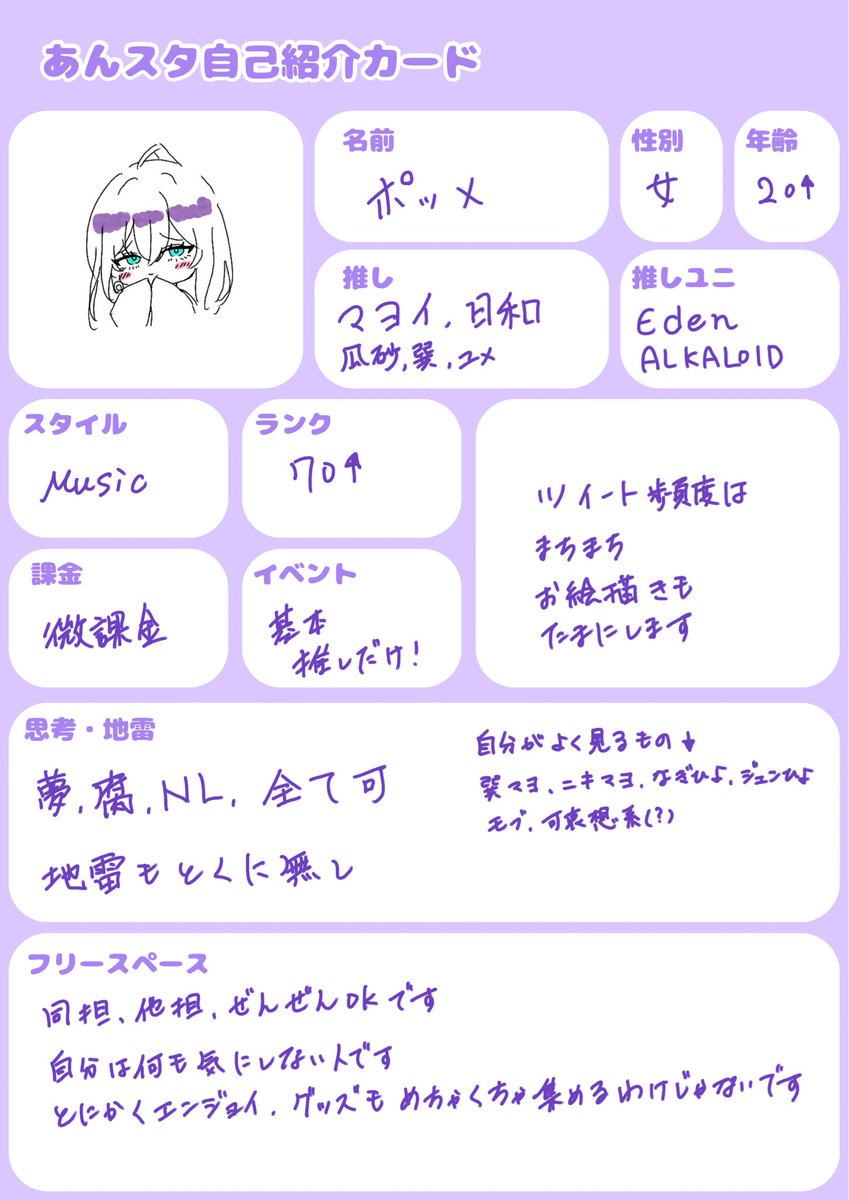 あんスタ自己紹介カード
名前
ポッメ
性別
女
年齢
20↑
推し
マヨイ,日和
瓜砂,巽,ユメ
推しユニ
Eden
ALKALOID
スタイル
Music
ランク
70↑
ツイート頻度は
まちまち
お絵描きも
たまにします
課金
微課金
イベント
基本
推しだけ!
思考・地雷
夢,腐,NL,全て可
地雷もとくに無し
自分がよく見るもの↓
巽マヨ、ニキマヨ、なぎひよ、ジュンひよ
モブ、可哀想系(?)
フリースペース
同担、他担、ぜんぜんOKです
自分は何も気にしない人です
とにかくエンジョイ、グッズもめちゃくちゃ集めるわけじゃないです